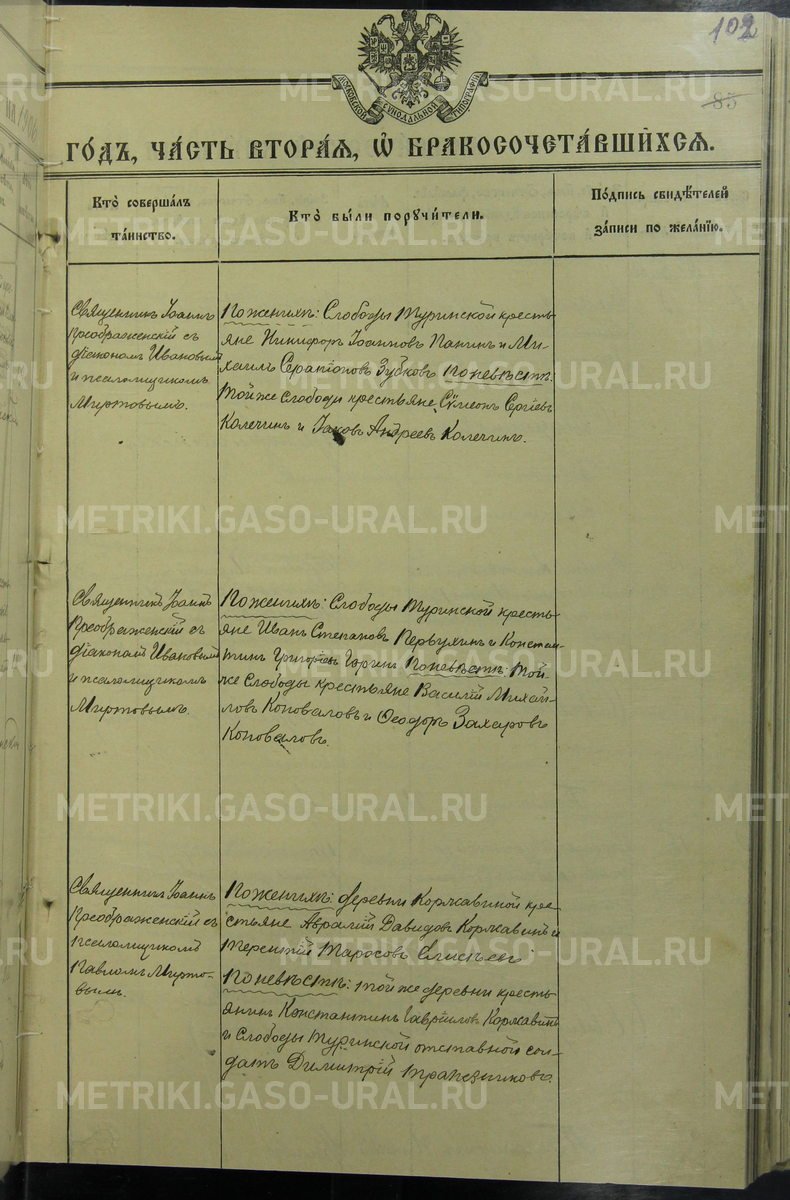 102
85
МОСКОВСКОЙ СѴНОДАЛЬНОЙ ТИПОГРАФІИ
ГО́ДЪ, ЧА́СТЬ ВТОРА́Я, Ѽ БРАКОСОЧЕТА́ВШИХСЯ.
Кто̀ соверша́лъ
та́инство.
Кто̀ бы́ли порꙋчи́тели.
По́дпись свидѣ́телей
за́писи по жела́нїю.
Священникъ Іоаннъ
Преображенскій съ
діакономъ Ивановымъ
и псаломщикомъ
Миртовымъ.
По женихѣ: Слободы Туринской кресть-
яне Никифоръ Іоанновъ Панинъ и Ми-
хаилъ Серапіоновъ Зубковъ По невѣстѣ:
Той же слободы крестьяне Сѵмеонъ Сергіевъ
Колечинъ и Іаковъ Андреевъ Колечинъ.
Священникъ Іоаннъ
Преображенскій съ
діакономъ Ивановымъ
и псаломщикомъ
Миртовымъ.
По женихѣ: Слободы Туринской кресть-
яне Иванъ Степановъ Первухинъ и Констан-
тинъ Григоріевъ Горинъ По невѣстѣ: Той-
же Слободы крестьяне Василій Михай-
ловъ Коноваловъ и Ѳеодоръ Захаровъ
Коноваловъ.
Священникъ Іоаннъ
Преображенскій съ
псаломщикомъ
Павломъ Мирто-
вымъ.
По женихѣ: деревни Коржавиной кре-
стьяне Аврамій Давидовъ Коржавинъ и
Терентій Тарасовъ Елисѣевъ
По невѣстѣ: той же деревни кресть-
янинъ Константинъ Гавріиловъ Коржавинъ
и Слободы Туринской отставной сол-
датъ Димитрій Трапезниковъ.
METRIKI.GASO-URAL.RU